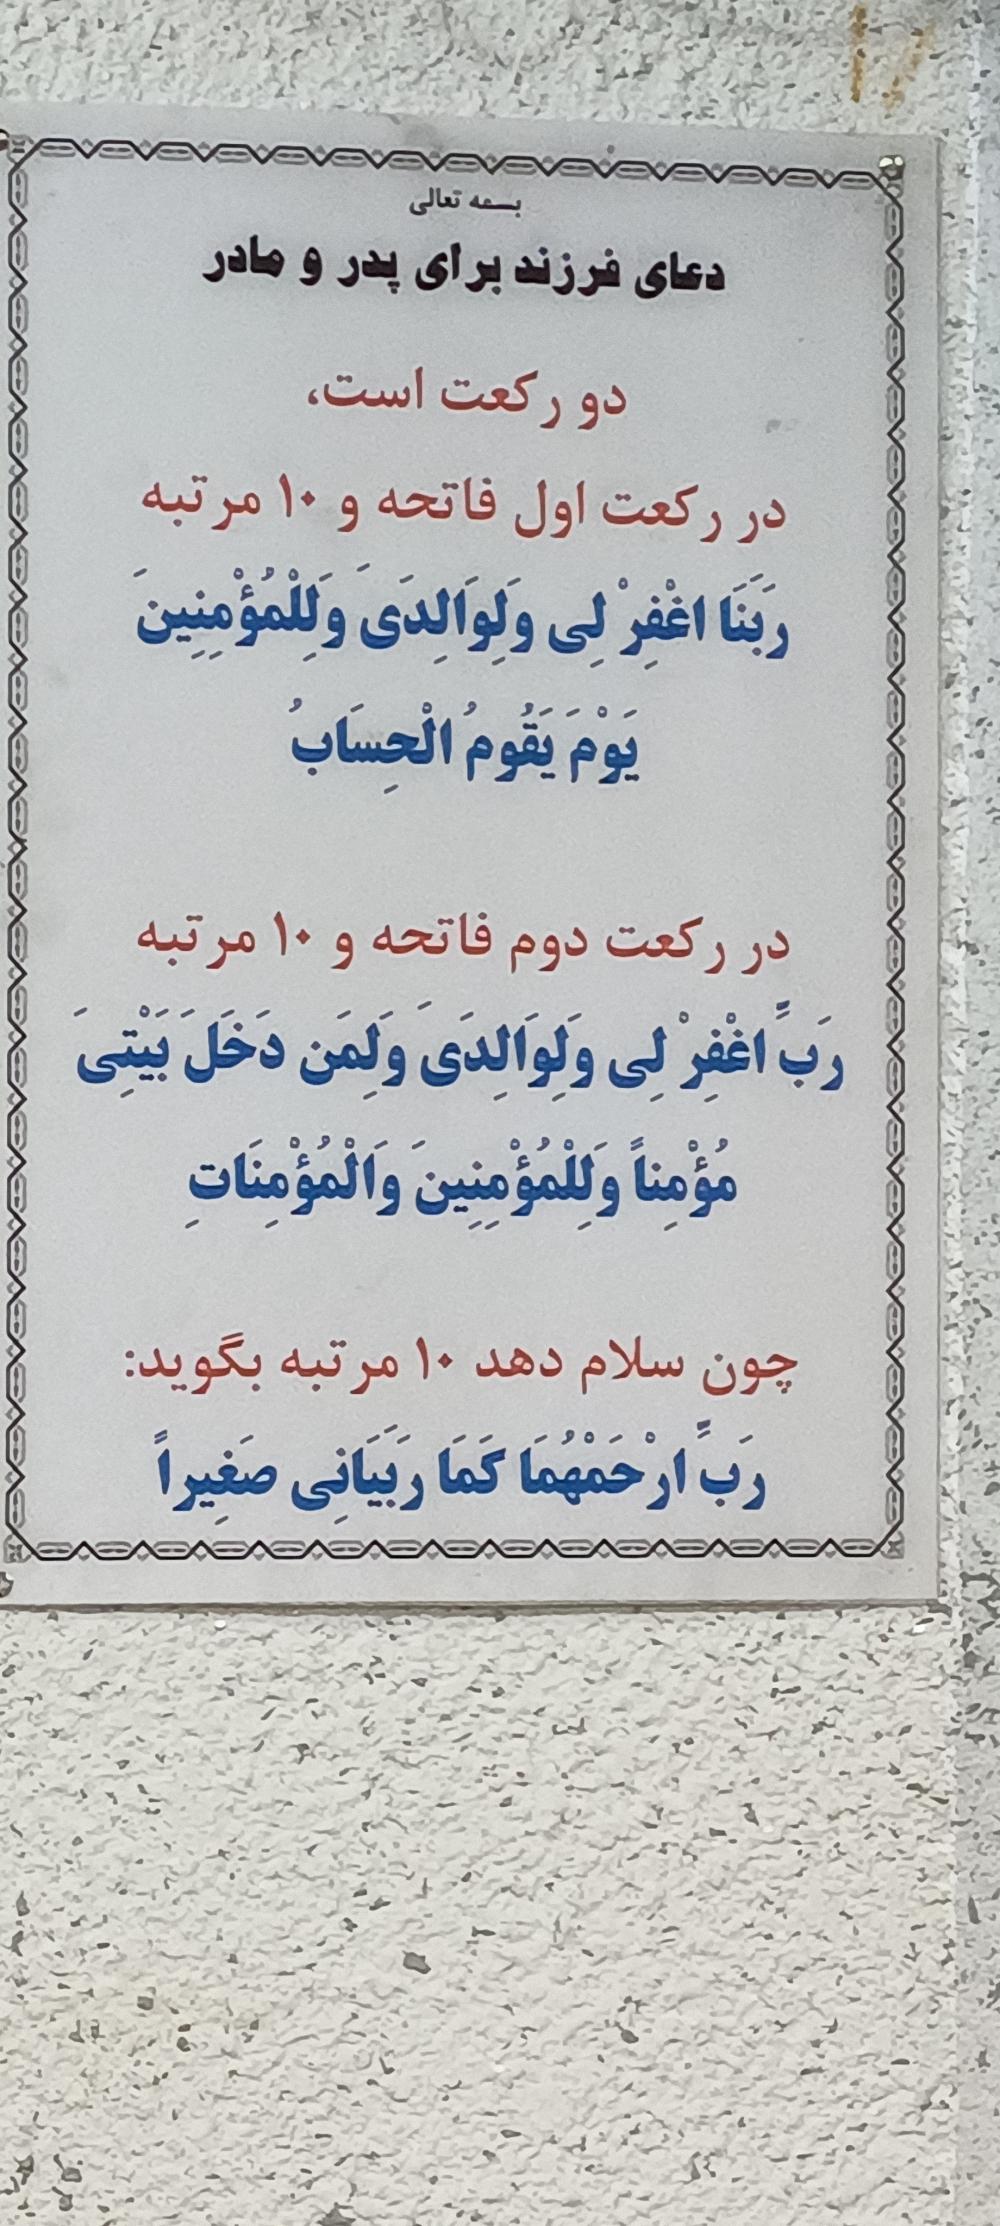 بسمه تعالی
دعای فرزند برای پدر و مادر
دو رکعت است،
در رکعت اول فاتحه و ۱۰ مرتبه
رَبَنَا اغْفِرْ لِی وَلِوَالِدَیَ وَلِلْمُؤْمِنِینَ
یَوْمَ یَقُومُ الْحِسَابُ
در رکعت دوم فاتحه و ۱۰ مرتبه
رَبِّ اغْفِرْ لِی وَلِوَالِدَیَ وَلِمَن دَخَلَ بَیْتِیَ
مُؤْمِناً وَلِلْمُؤْمِنِینَ وَالْمُؤْمِنَاتِ
چون سلام دهد ۱۰ مرتبه بگوید:
رَبِّ ارْحَمْهُمَا کَمَا رَبَیَانِی صَغِیراً